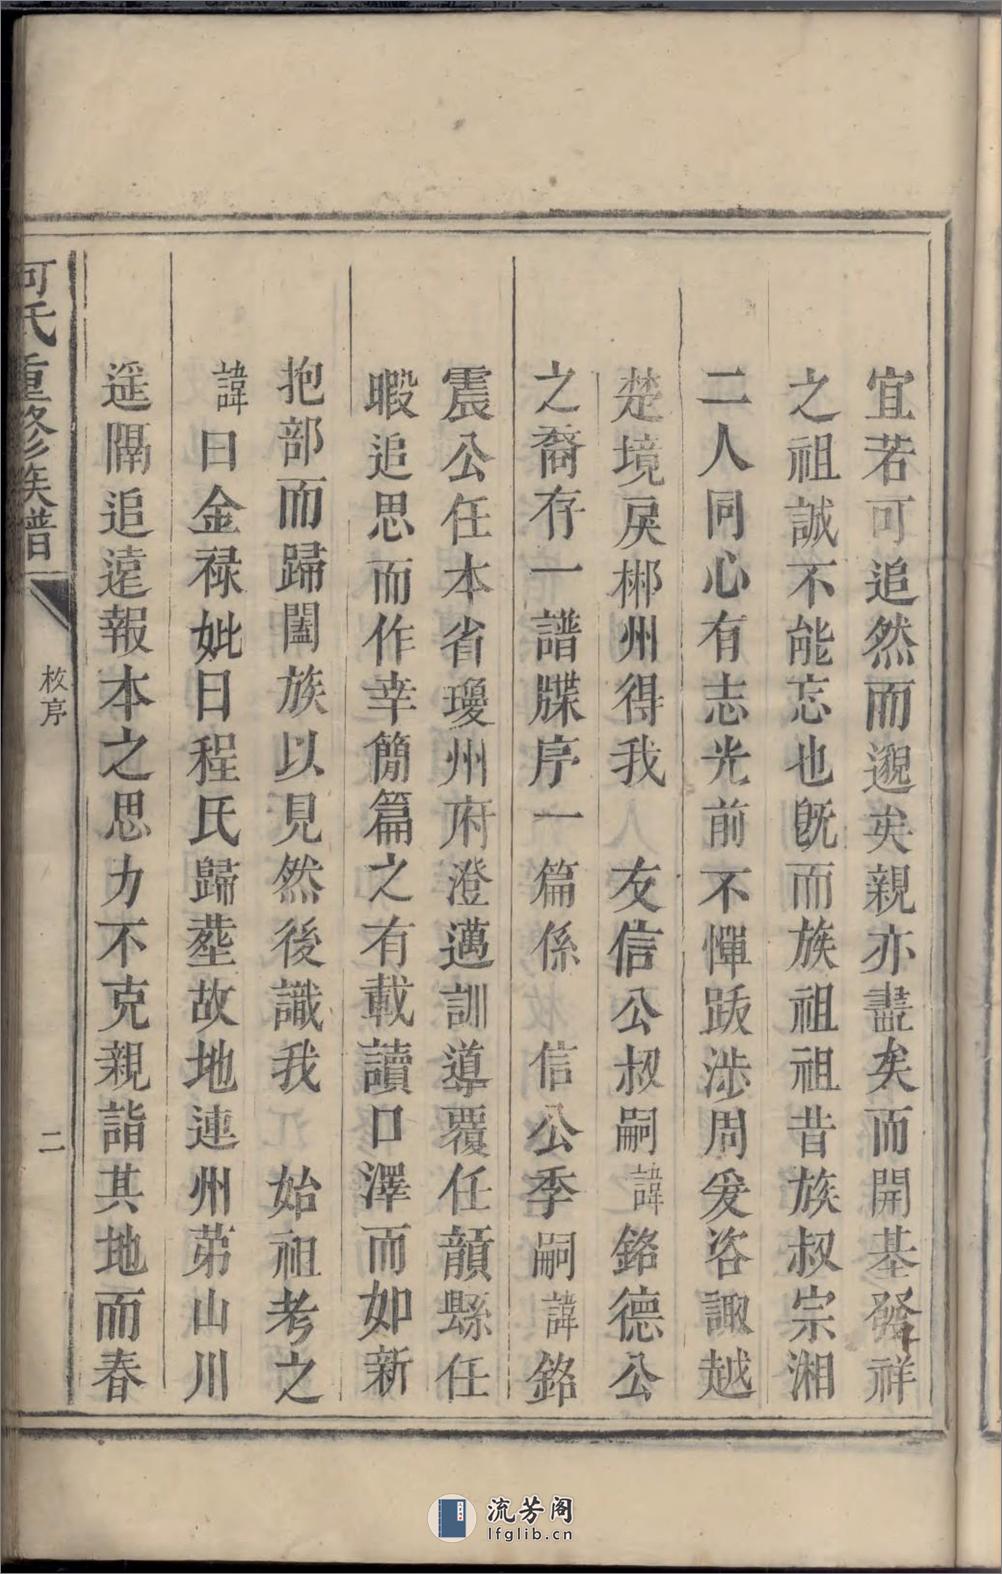 宜若可追然而邈矣親亦盡矣而開基發祥
之祖誠不能忘也旣而族祖祖昔族叔宗湘
二人同心有志光前不憚跋涉周爰咨諏越
楚境戾郴州得我 友信公叔嗣諱銘德公
之裔存一譜牒序一篇係 信公季嗣諱銘
震公任本省瓊州府澄邁訓導覆任韻縣任
暇追思而作幸簡篇之有載讀口澤而如新
抱部而歸闔族以見然後識我 始祖考之
諱曰金禄妣曰程氏歸塟故地連州第山川
遥隔追遠報本之思力不克親詣其地而春
何氏重修族譜
枚序
二
流芳阁
lfglib.cn